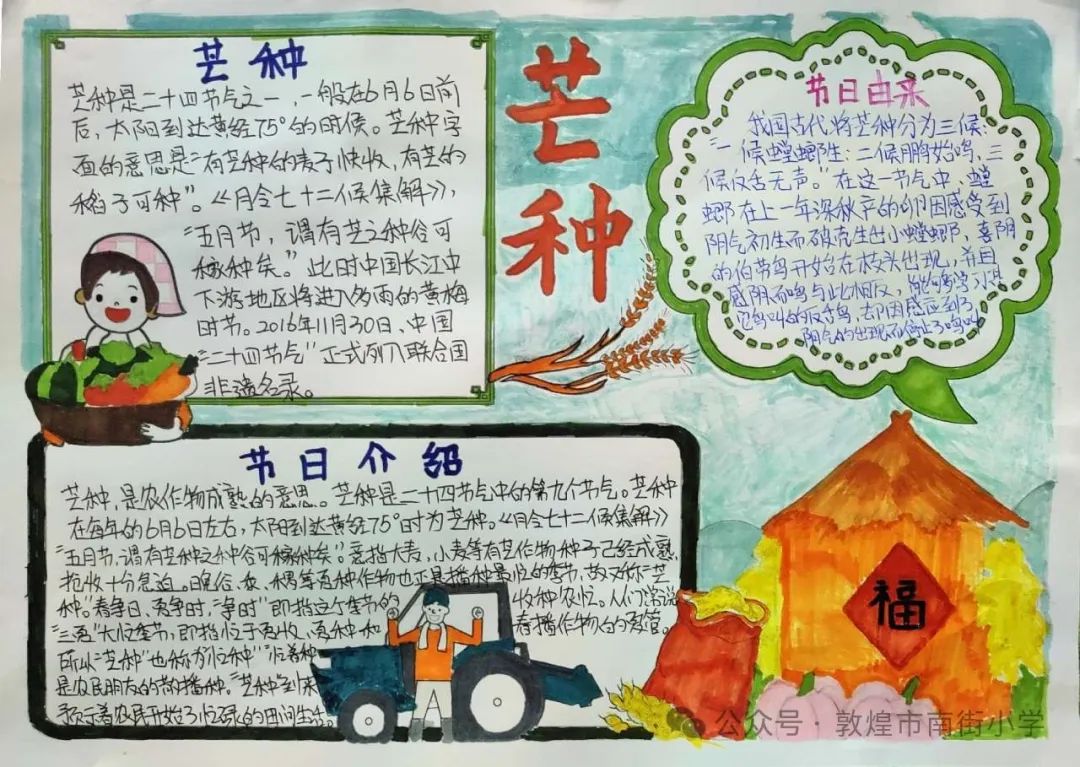 芒种
芒种是二十四节气之一，一般在6月6日前
后，太阳到达黄经75°的时候。芒种字
面的意思是“有芒种的麦子快收，有芒的
稻子可种”。《月令七十二候集解》，
“五月节，谓有芒之种谷可
稼种矣。”此时中国长江中
下游地区将进入多雨的黄梅
时节。2016年11月30日、中国
“二十四节气”正式列入联合国
非遗名录。
芒种
节日由来
我国古代将芒种分为三候：
“一候螳螂生：二候鹏始鸣，三
候反舌无声。”在这一节气中、螳
螂在上一年深秋产的卵因感受到
阴气初生而破壳生出小螳螂、喜阴
的伯劳鸟开始在枝头出现，并且
感阴而鸣与此相反，能够学习其
它鸟叫的反舌鸟，却因感应到了
阴气的出现而停止了鸣叫
节日介绍
芒种，是农作物成熟的意思。芒种是二十四节气中的第九个节气。芒种
在每年的6月6日左右，太阳到达黄经75°时为芒种。《月令七十二候集解》
“五月节，谓有芒种之种谷可稼种矣”。意指大麦，小麦等有芒作物种子已经成熟，
抢收十分急迫。晚谷、黍、稷等夏种作物也正是播种最忙的季节，故又称“芒
种”。春争日、夏争时，“争时”即指这个季节的收种农忙。人们常说
“三夏”大忙季节，即指忙于夏收、夏种和春播作物的夏管。
所以“芒种”也称为“忙种”“忙着种”
是农民朋友的播种。“芒种”到来
预示着农民开始了忙碌的田间生活
福
公众号·敦煌市南街小学